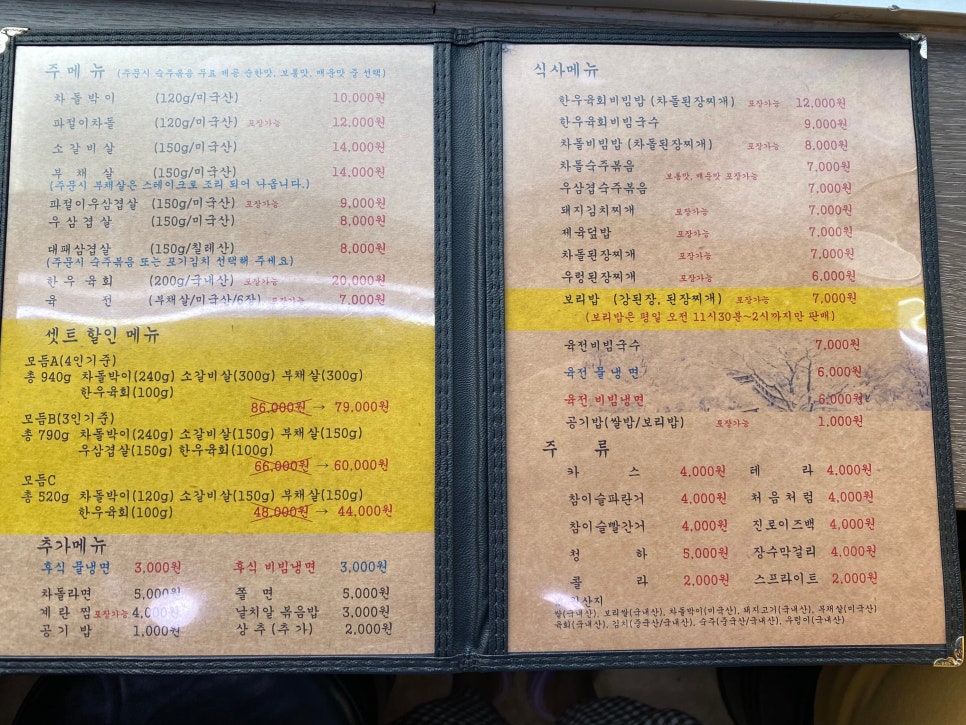 주메뉴 (주문시 숙주볶음 무료 제공 순한맛, 보통맛, 매운맛 중 선택)
차돌박이 (120g/미국산) 10,000원
파절이차돌 (120g/미국산) 포장가능 12,000원
소갈비살 (150g/미국산) 14,000원
부채살 (150g/미국산) 14,000원
(주문시 부채살은 스테이크로 조리 되어 나옵니다.)
파절이우삼겹살 (150g/미국산) 포장가능 9,000원
우삼겹살 (150g/미국산) 8,000원
대패삼겹살 (150g/칠레산) 8,000원
(주문시 숙주볶음 또는 포기김치 선택해 주세요)
한우육회 (200g/국내산) 포장가능 20,000원
육전 (부채살/미국산/6장) 포장가능 7,000원
셋트 할인 메뉴
모듬A(4인기준)
총 940g 차돌박이(240g) 소갈비살(300g) 부채살(300g)
한우육회(100g)
86,000원 → 79,000원
모듬B(3인기준)
총 790g 차돌박이(240g) 소갈비살(150g) 부채살(150g)
우삼겹살(150g) 한우육회(100g)
66,000원 → 60,000원
모듬C
총 520g 차돌박이(120g) 소갈비살(150g) 부채살(150g)
한우육회(100g) 48,000원 → 44,000원
추가메뉴
후식 물냉면 3,000원 후식 비빔냉면 3,000원
차돌라면 5,000원 쫄면 5,000원
계란찜 포장가능 4,000원 날치알 볶음밥 3,000원
공기밥 1,000원 상추(추가) 2,000원
식사메뉴
한우육회비빔밥 (차돌된장찌개) 포장가능 12,000원
한우육회비빔국수 9,000원
차돌비빔밥 (차돌된장찌개) 포장가능 8,000원
차돌숙주볶음 7,000원
보통맛, 매운맛 포장가능
우삼겹숙주볶음 7,000원
돼지김치찌개 포장가능 7,000원
제육덮밥 포장가능 7,000원
차돌된장찌개 포장가능 7,000원
우렁된장찌개 포장가능 6,000원
보리밥 (강된장, 된장찌개) 포장가능 7,000원
(보리밥은 평일 오전 11시30분~2시까지만 판매)
육전비빔국수 7,000원
육전 물냉면 6,000원
육전 비빔냉면 6,000원
공기밥(쌀밥/보리밥) 포장가능 1,000원
주류
카스 4,000원 테라 4,000원
참이슬파란거 4,000원 처음처럼 4,000원
참이슬빨간거 4,000원 진로이즈백 4,000원
청하 5,000원 장수막걸리 4,000원
콜라 2,000원 스프라이트 2,000원
원산지
쌀(국내산), 보리쌀(국내산), 차돌박이(미국산), 돼지고기(국내산), 부채살(미국산)
육회(국내산), 김치(중국산/국내산), 숙주(중국산/국내산), 우렁이(국내산)